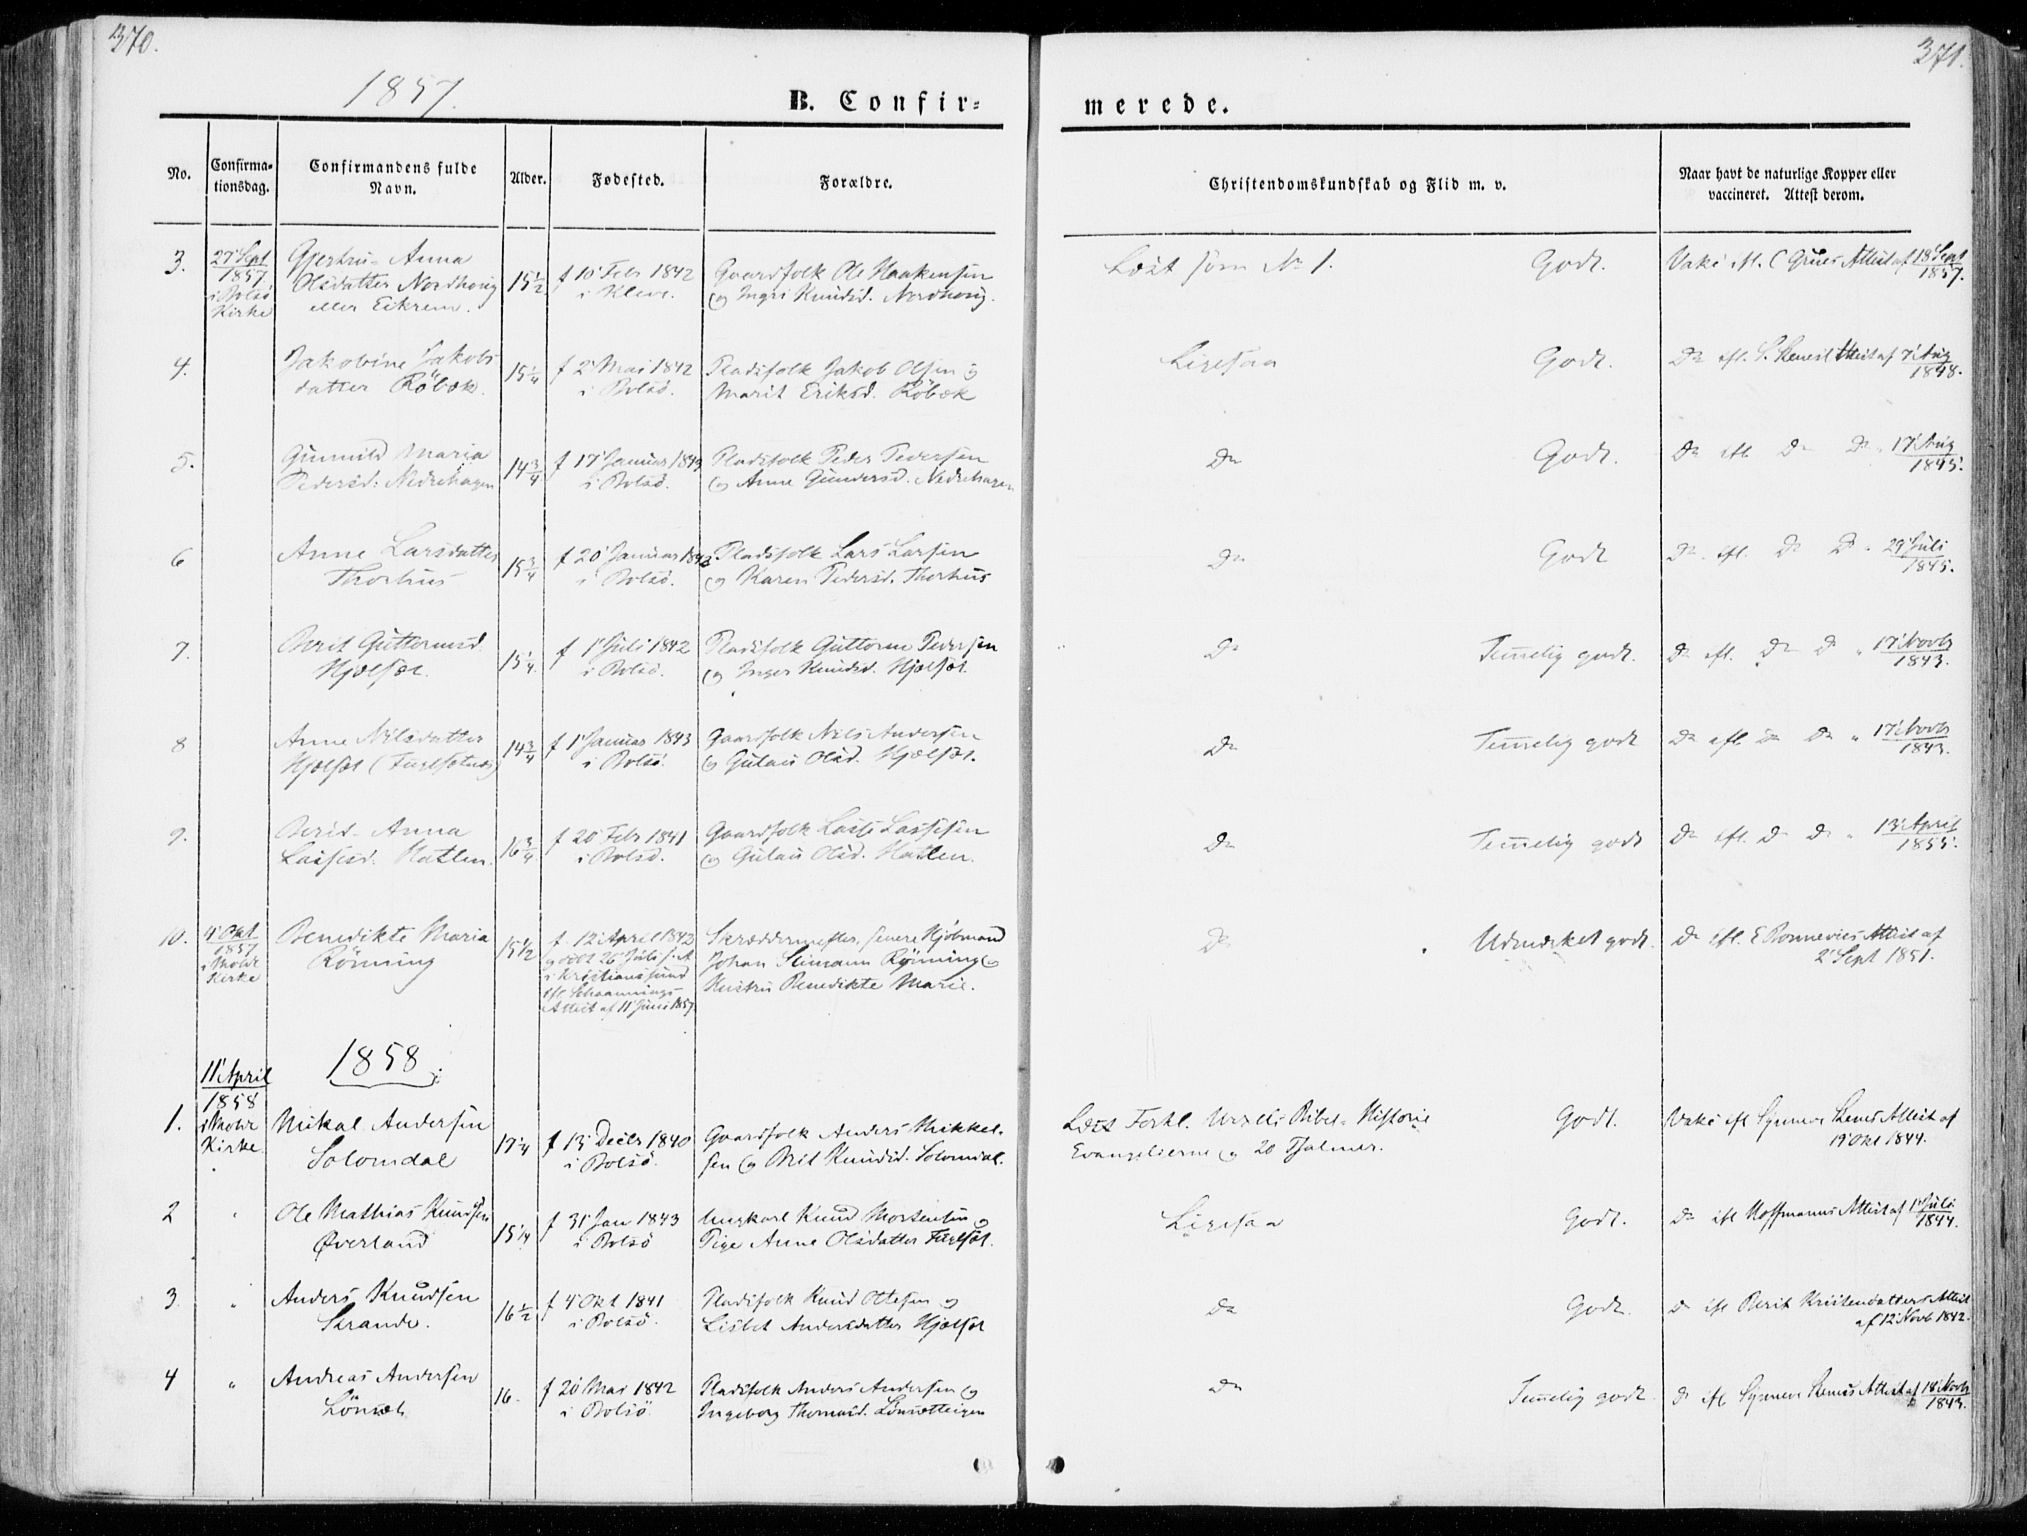 370.
371.
1857.
B. Confir=
merede.
No.
Confirma=
tionsdag.
Confirmandens fulde
Navn.
Alder.
Fødested.
Forældre.
Christendomskundskab og Flid m. v.
Naar havt de naturlige Kopper eller
vaccineret. Attest derom.
3. 27' Sept 1857 i Bolsö Kirke
Anna
Olsdatter Nordhoug
eller Eikrem.
15 1/2
f 10' Febr 1842
i Kleve.
Gaardfolk Ole Haakensen
og Ingri Knudsd. Nordhoug.
Læst som No 1. Godt.
Attest af 18' Sept 1857.
4.
Jakobine Jakobs
datter Röbæk.
15 1/4
f 2' Mai 1842
i Bolsö.
Pladsfolk Jakob Olsen og
Marit Eriksd. Röbæk
Ligesaa Godt.
Do efl. S. Attest af 7' Aug 1848.
5.
Gunnild Maria
Pedersd. Nedrehagen
14 3/4
f 17' Januar 1843
i Bolsö.
Pladsfolk Peder Pedersen
og Anne Gundersd. Nedrehagen
Do Godt.
Do efl. Do Do 17' Aug 1845.
6
Anne Larsdatter
Thorhus
15 3/4
f 20' Januar 1842
i Bolsö.
Pladsfolk Lars Larsen
og Karen Pedersd. Thorhus
Do Godt
Do efl. Do Do 29' Juli 1845.
7.
Berit Guttormsd.
Hjelset.
15 1/4
f 1' Juli 1842
i Bolsö.
Pladsfolk Guttorm Pedersen
og Inger Knudsd. Hjelset.
Do Temelig godt.
Do efl. Do Do 17' Novbr 1843.
8
Anne Nilsdatter
Hjelset (Fuglsetnes)
14 3/4
f 1' Januar 1843
i Bolsö.
Gaardfolk Nils Andersen
og Gulau Olsd. Hjelset.
Do Temelig godt
Do efl. Do Do 17' Novbr 1843.
9.
Berid-Anna
Lassesd. Hatlen.
16 3/4
f 20' Febr 1841
i Bolsö.
Gaardfolk Lasse Lassesen
og Gulau Olsd. Hatlen.
Do Temelig godt
Do efl. Do Do 13' April 1855.
10. 4' Okt 1857 i Molde Kirke
Benedikte Maria
Rönning
15 1/2
f. 12' April 1842
og döbt 26' Juli s. A
i Kristianssund
efl. Schaannings
Attest af 11' Juni 1857.
Skræddermester, senere Kjöbmand
Johan Rönning og
Hustru Benedikte Marie.
Do Udmærket godt.
Do efl. E Bonnevies Attest af
2' Sept 1851.
1858.
1. 11' April 1858 i Molde Kirke
Mikal Andersen
Solemdal
17 1/4
f 13' Decbr 1840
i Bolsö.
Gaardfolk Anders Mikkel-
sen og Brit Knudsd. Solemdal.
Læst Forkl. Bibel-Historie
Evangelierne og 20 Psalmer.
Godt.
Vakc efl Synneve Attest af
19' Okt 1844.
2 "
Ole Mathias Knudsen
Øverland
15 1/4
f 31' Jan 1843
i Bolsö
Ungkarl Knud Mortensen og
Pige Anne Olsdatter Fuglset.
Ligesaa Godt.
Do efl Hoffmanns Attest af 1' Juli 1844.
3. "
Anders Knudsen
Strande.
16 1/2
f 4' Okt 1841
i Bolsö.
Pladsfolk Knud Ottesen og
Lisbet Andersdatter Hjelset
Do Godt.
Do efl Berit Kristensdatters Attest
af 12' Novb 1842.
4 "
Andreas Andersen
Lönset
16.
f 20' Mai 1842
i Bolsö.
Pladsfolk Anders Andersen og
Ingeborg Thomasd. Lönsetteigen
Do Temelig godt
Do efl Synneve Attest af 18' Novbr 1843.